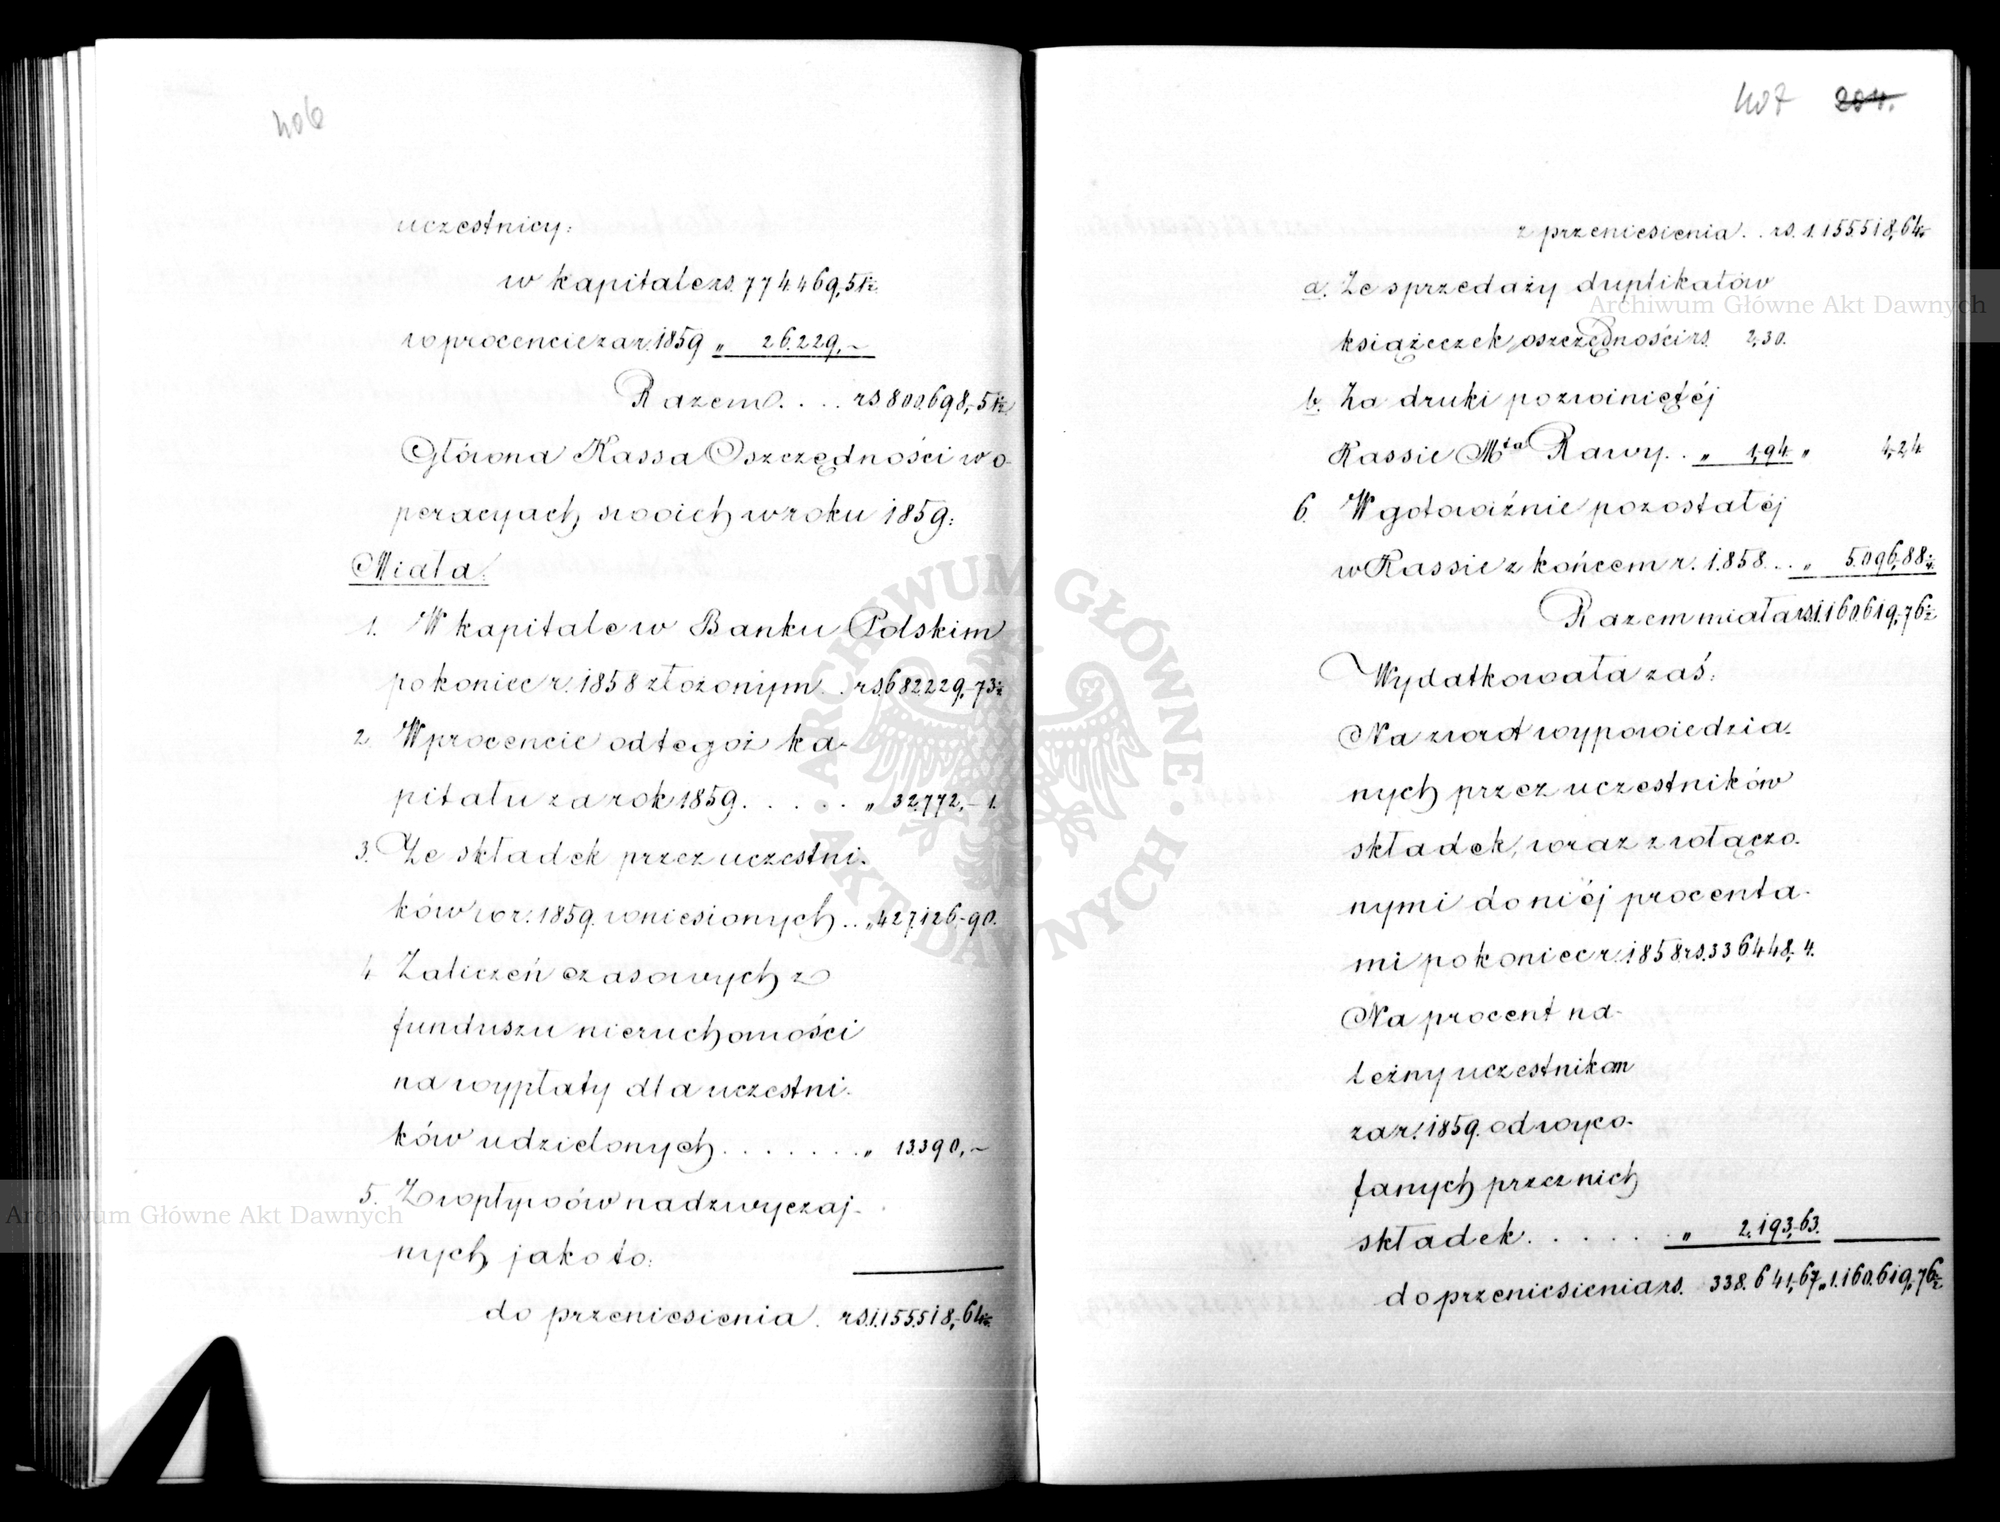 406
uczestnicy:
w kapitale rs. 774.469,5½
w procencie za r. 1859 „ 26.229,—
Razem . . . . rs. 800.698,5½
Główna Kassa Oszczędności w o-
peracyach swoich w roku 1859:
Miała:
1. W kapitale w Banku Polskim
po koniec r. 1858 złożonym . . rs. 682.229,-73½
2. W procencie od tegoż ka-
pitału za rok 1859. . . . . . „ 32.772,-1.
3. Ze składek przez uczestni-
ków w r. 1859. wniesionych . . „ 427.126,-90.
4. Zaliczeń czasowych z
funduszu nieruchomości
na wypłaty dla uczestni-
ków udzielonych . . . . . . . „ 13.390,—
5. Z wpływów nadzwyczaj-
nych, jako to:
do przeniesienia . rs. 1.155.518,-64½
407 204.
z przeniesienia . . rs. 1.155.518,64½
a. Ze sprzedaży duplikatów
książeczek oszczędności rs. 2,30.
b. Za druki po zwiniętéj
Kassie Mta Rawy . . „ 1,94 „ 4,24
6. W gotowiźnie pozostałéj
w Kassie z końcem r. 1858 . . . „ 5.096,88
Razem miała rs. 1.160.619,-76½
Wydatkowała zaś:
Na zwrot wypowiedzia-
nych przez uczestników
składek, wraz z włączo-
nymi do niéj procenta-
mi po koniec r. 1858 rs. 336.448,-4.
Na procent na-
leżny uczestnikom
za r. 1859. od wyco-
fanych przez nich
składek . . . . . . . „ 2.193,-63.
do przeniesienia rs. 338.641,-67 „ 1.160.619,-76½
Archiwum Główne Akt Dawnych
Archiwum Główne Akt Dawnych
ARCHIWUM GŁÓWNE · AKT DAWNYCH ·